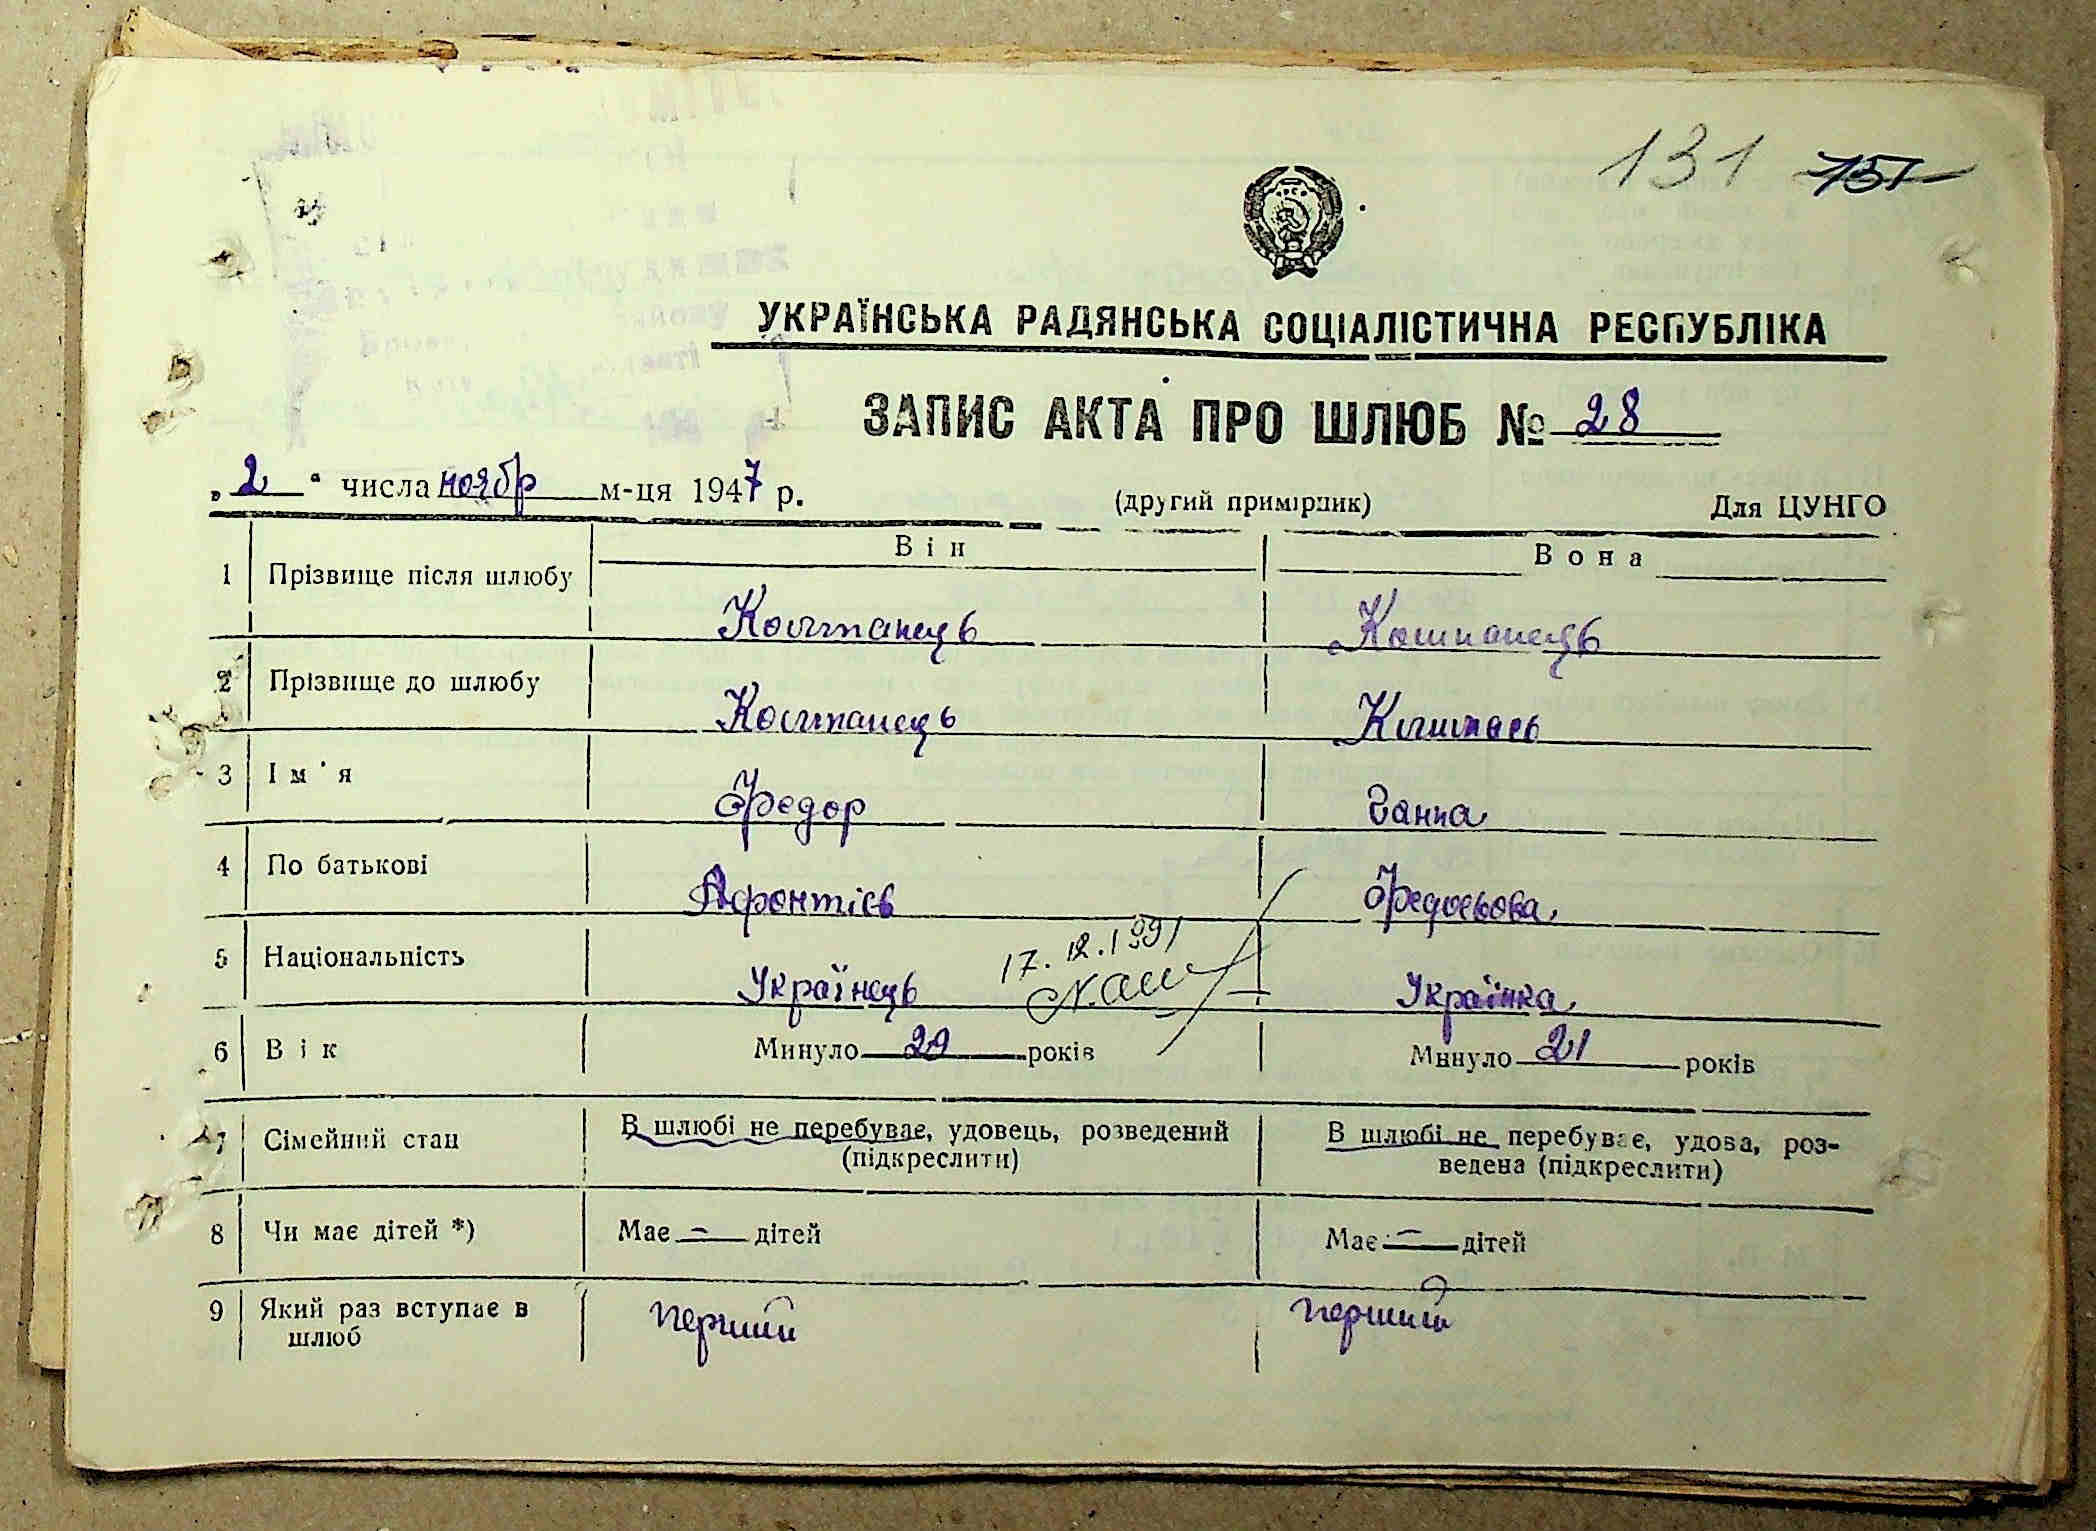 131 151
УКРАЇНСЬКА РАДЯНСЬКА СОЦІАЛІСТИЧНА РЕСПУБЛІКА
ЗАПИС АКТА ПРО ШЛЮБ № 28
„2“ числа ноябр м-ця 1947 р. (другий примірник) Для ЦУНГО
Він Вона
1 Прізвище після шлюбу Коштанець Коштанець
2 Прізвище до шлюбу Коштанець
3 Ім'я Федор Ганна
4 По батькові Афонтієв Федосьова
5 Національність Українець Українка
17.12.1991
6 Вік Минуло 29 років Минуло 21 років
7 Сімейний стан В шлюбі не перебуває, удовець, розведений (підкреслити) В шлюбі не перебуває, удова, роз-
ведена (підкреслити)
8 Чи має дітей *) Має — дітей Має — дітей
9 Який раз вступає в шлюб перший перший